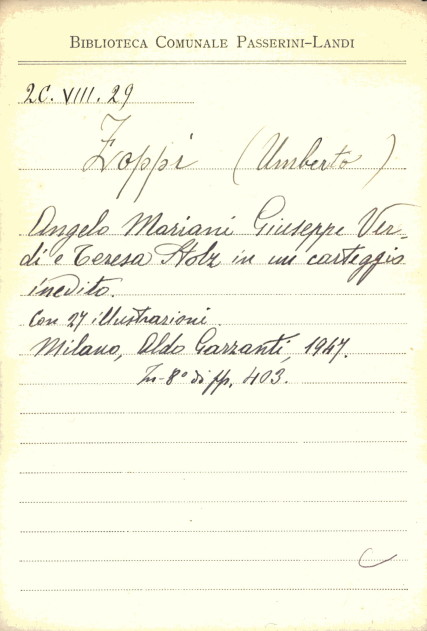 BIBLIOTECA COMUNALE PASSERINI-LANDI
2C. VIII. 29
Zoppi (Umberto)
Angelo Mariani Giuseppe Ver-
di e Teresa Stolz in un carteggio
inedito.
Con 27 illustrazioni.
Milano, Aldo Garzanti, 1947.
In-8° di pp. 403.